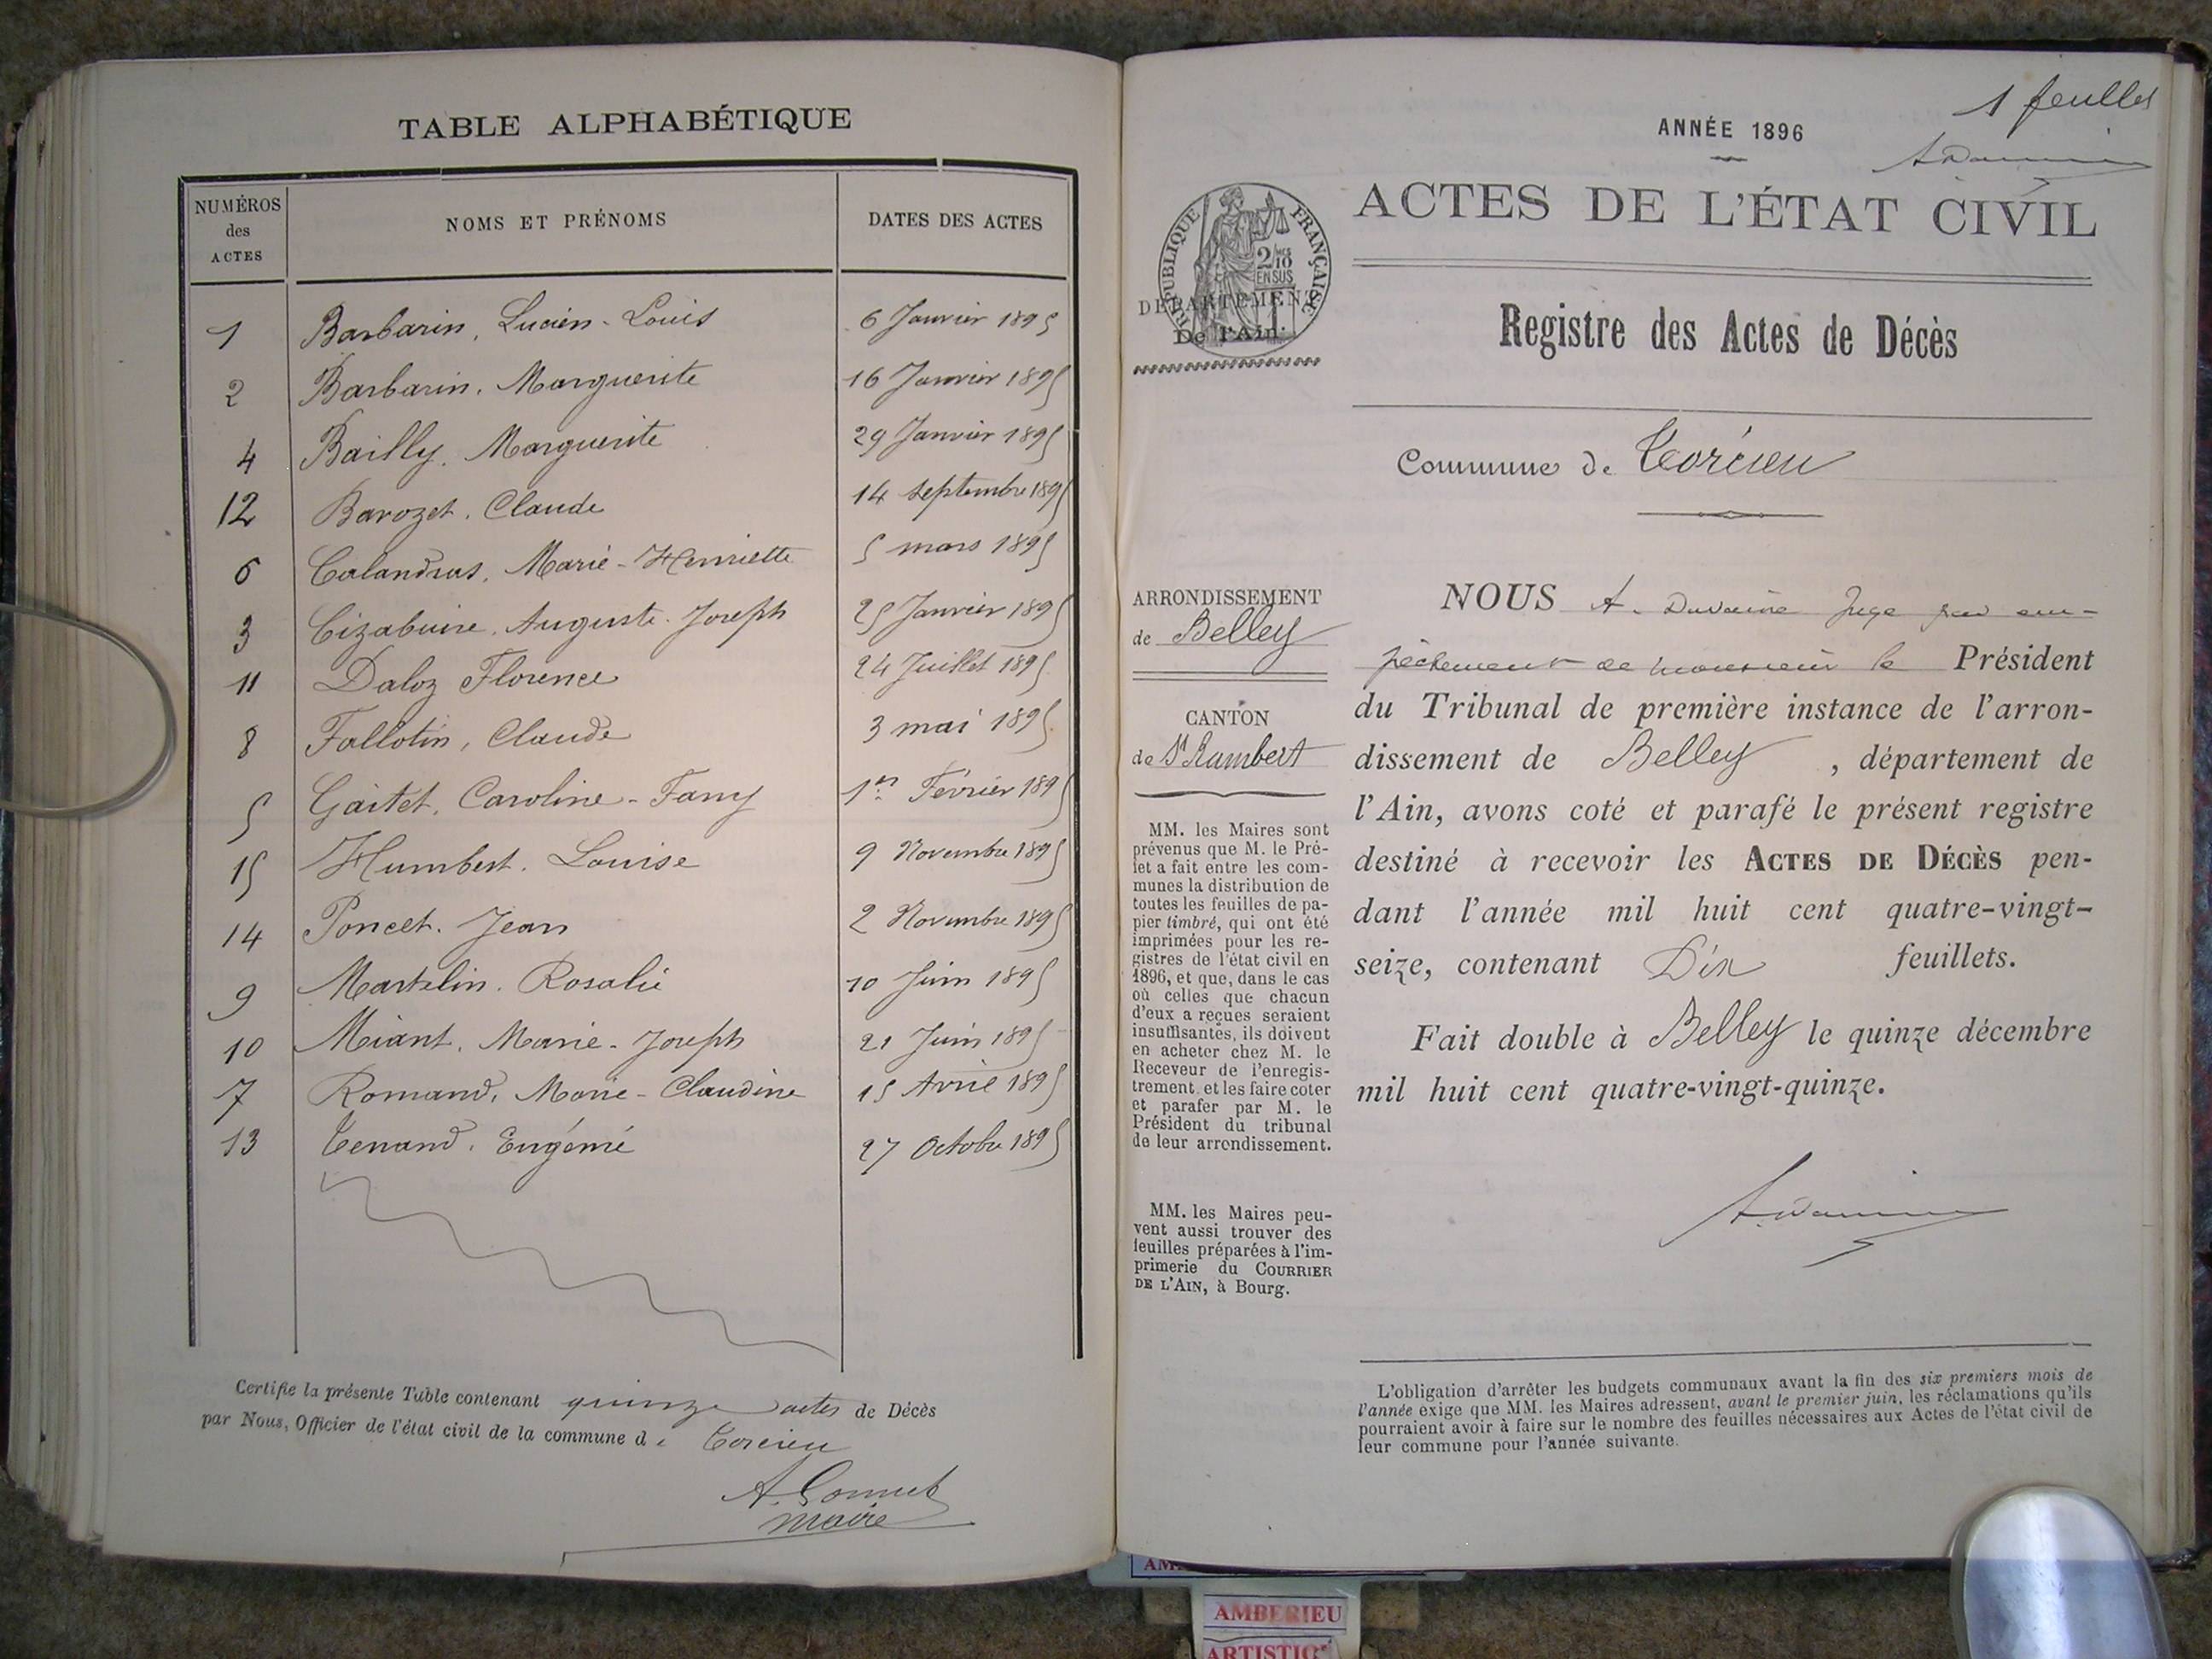 TABLE ALPHABÉTIQUE
NUMÉROS des ACTES NOMS ET PRÉNOMS DATES DES ACTES
1 Barbarin, Lucien-Louis 6 Janvier 1895
2 Barbarin. Marguerite 16 Janvier 1895
4 Bailly. Marguerite 29 Janvier 1895
12 Barozet. Claude 14 septembre 1895
6 Calandras. Marie-Henriette 5 mars 1895
3 Cizabuire. Auguste. Joseph 25 Janvier 1895
11 Daloz Florence 24 Juillet 1895
8 Fallotin, Claude 3 mai 1895
5 Gaitet. Caroline-Fany 1er Février 1895
15 Humbert. Louise 9 Novembre 1895
14 Poncet. Jean 2 Novembre 1895
9 Martelin. Rosalie 10 Juin 1895
10 Miant. Marie-Joseph 21 Juin 1895
7 Romand, Marie-Claudine 15 Avril 1895
13 Tenand. Eugénie 27 Octobre 1895
Certifie la présente Table contenant quinze actes de Décès
par Nous, Officier de l'état civil de la commune de Torcieu
A. Bonnet
maire
1 feuillet
ANNÉE 1896
ACTES DE L'ÉTAT CIVIL
RÉPUBLIQUE FRANÇAISE
2/10
EN SUS
DÉPARTEMENT
De l'Ain.
Registre des Actes de Décès
Commune de Torcieu
ARRONDISSEMENT
de Belley
CANTON
de St Rambert
MM. les Maires sont
prévenus que M. le Pré-
fet a fait entre les com-
munes la distribution de
toutes les feuilles de pa-
pier timbré, qui ont été
imprimées pour les re-
gistres de l'état civil en
1896, et que, dans le cas
où celles que chacun
d'eux a reçues seraient
insuffisantes, ils doivent
en acheter chez M. le
Receveur de l'enregis-
trement, et les faire coter
et parafer par M. le
Président du tribunal
de leur arrondissement.
MM. les Maires peu-
vent aussi trouver des
feuilles préparées à l'im-
primerie du COURRIER
DE L'AIN, à Bourg.
NOUS A. Juge par em-
pêchement de monsieur le Président
du Tribunal de première instance de l'arron-
dissement de Belley, département de
l'Ain, avons coté et parafé le présent registre
destiné à recevoir les ACTES DE DÉCÈS pen-
dant l'année mil huit cent quatre-vingt-
seize, contenant Dix feuillets.
Fait double à Belley le quinze décembre
mil huit cent quatre-vingt-quinze.
L'obligation d'arrêter les budgets communaux avant la fin des six premiers mois de
l'année exige que MM. les Maires adressent, avant le premier juin, les réclamations qu'ils
pourraient avoir à faire sur le nombre des feuilles nécessaires aux Actes de l'état civil de
leur commune pour l'année suivante.
AMBERIEU
ARTISTIC